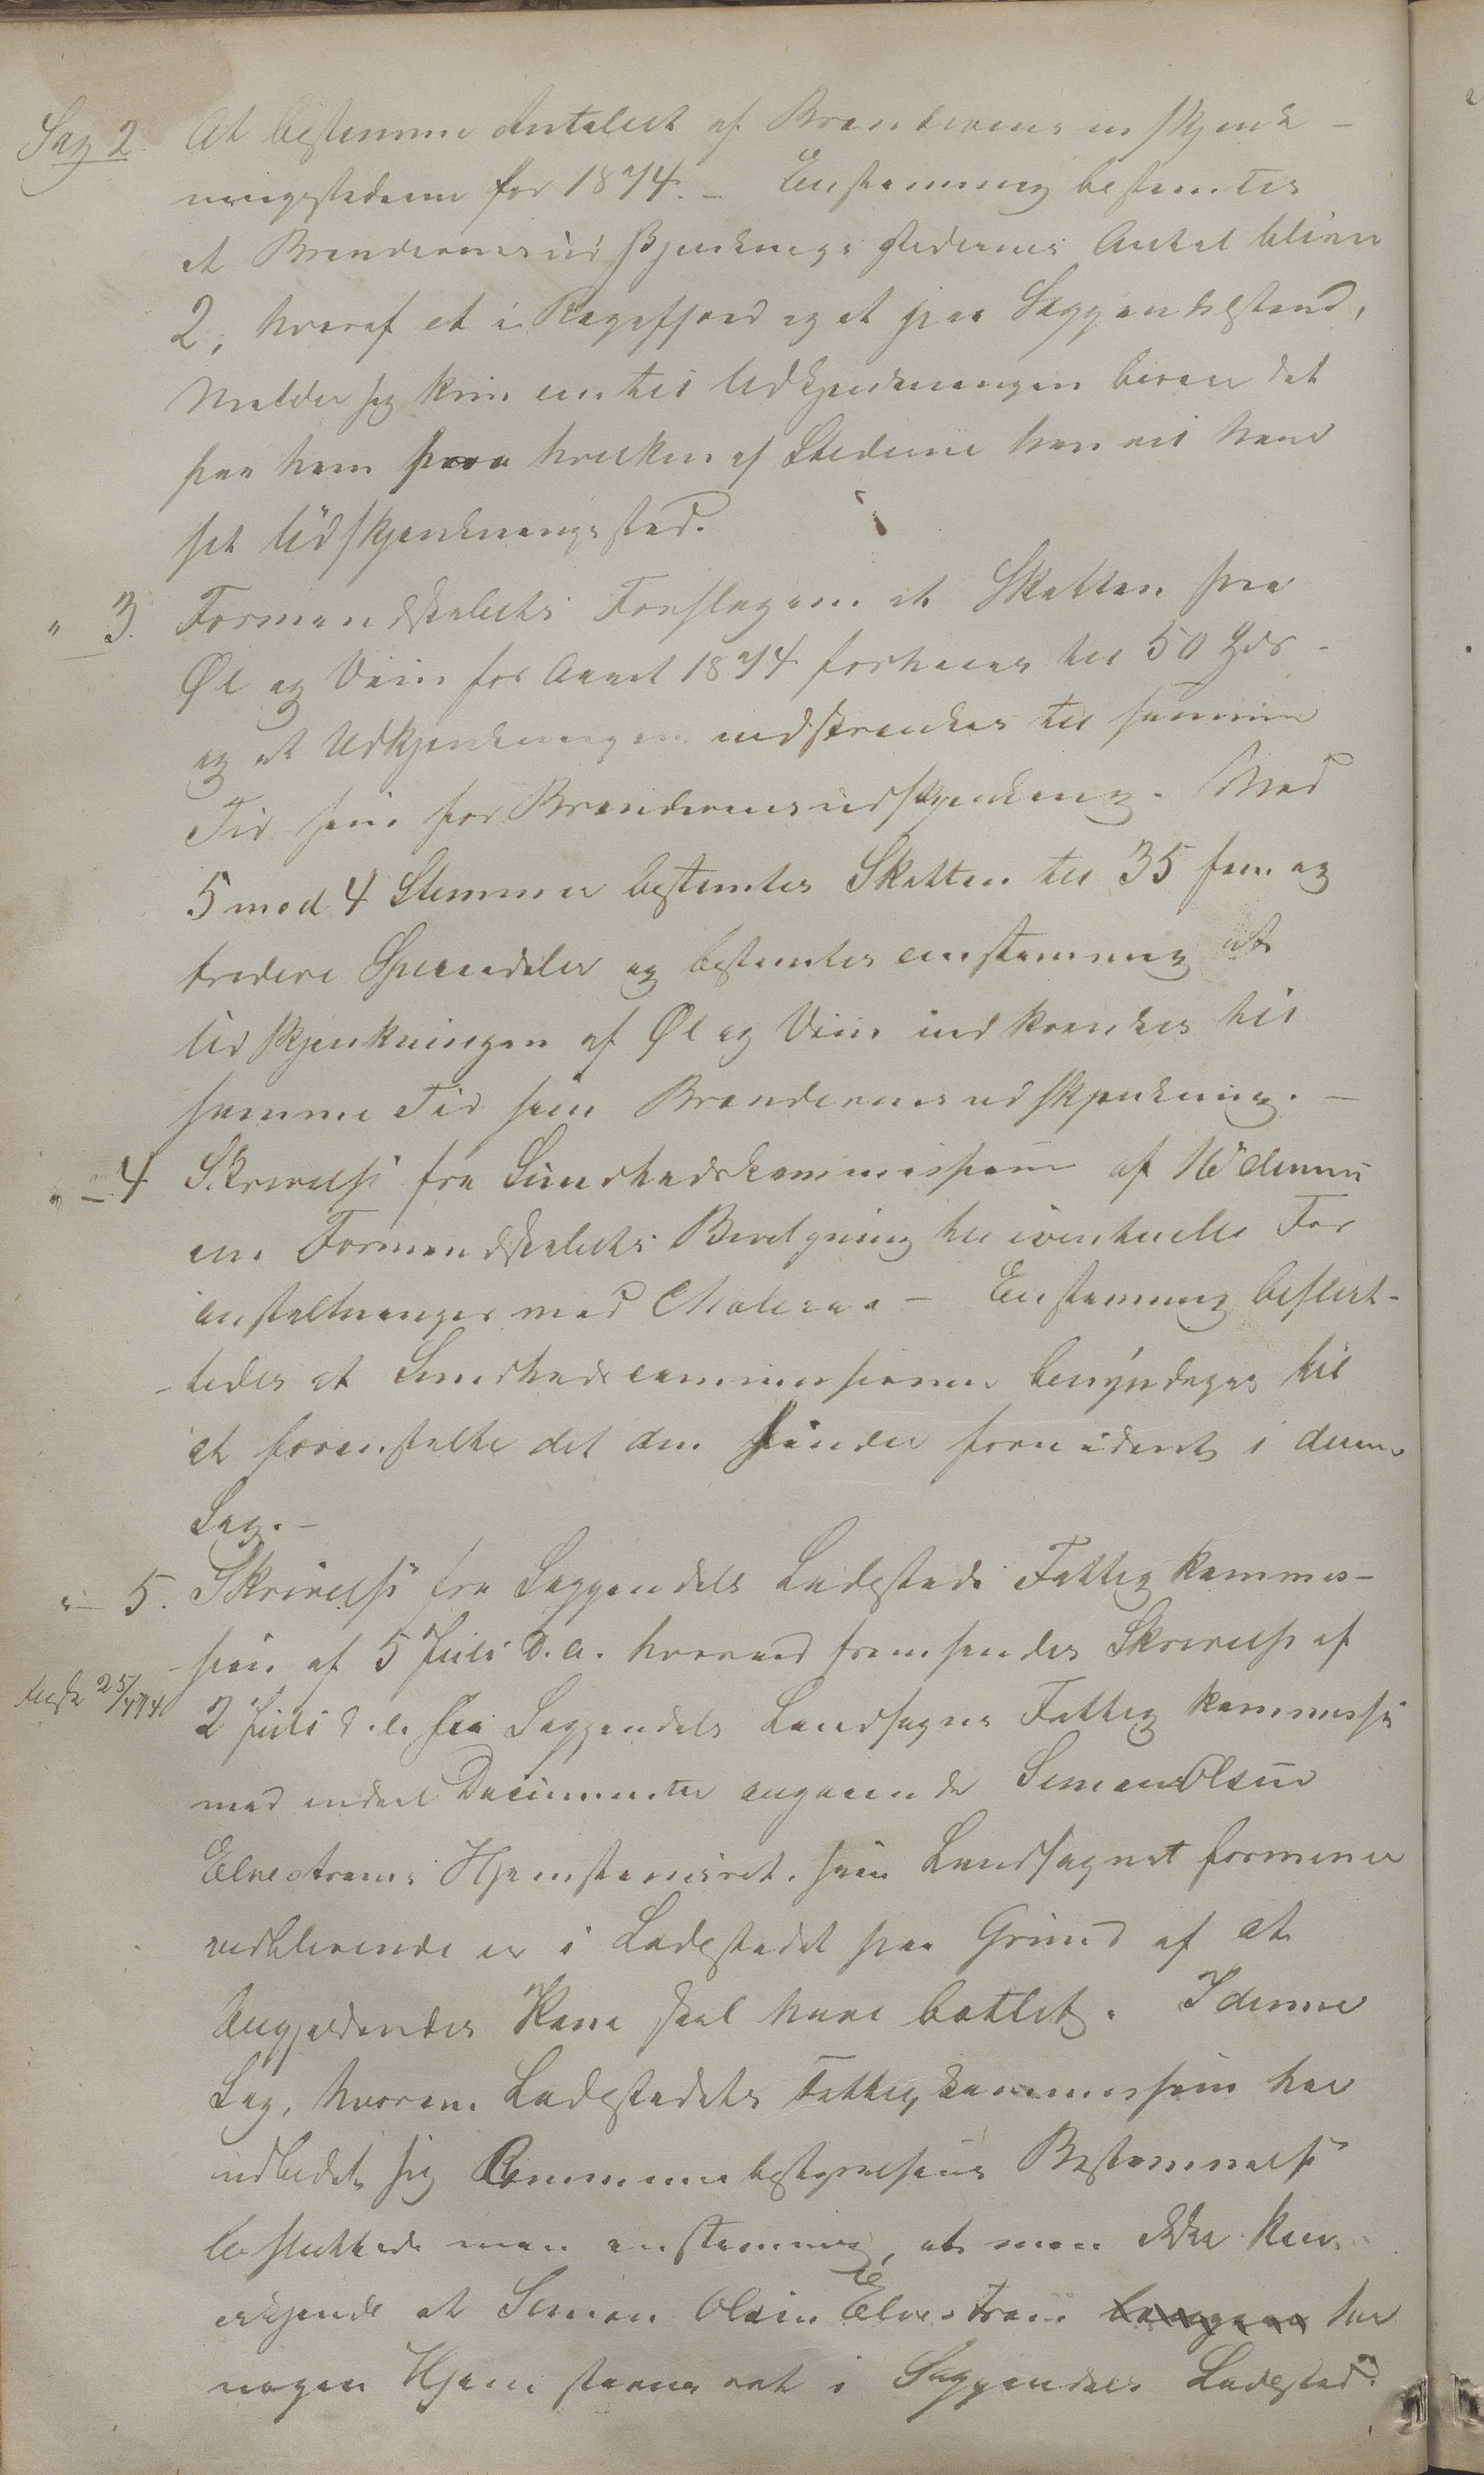 Sag 2. At bestemme Antallet af Brændeviins uskjenk-
ningsstederne for 1874. – Eenstemmig bestemtes
at Brændeviinsudskjenkningsstedernes Antal bliver
2, hvoraf et i Rægefjord og et paa Soggendalstrand,
Melder sig kun en til Udskjenkningen beroer det
paa ham paa hvilken af Stederne han vil have
sit Udskjenkningssted.
" 3. Formandskabets Forslag om at Skatten paa
Øl og Viin for Aaret 1874 forhøies til 50 Spdr -
og at Udskjenkningen indskrenkes til samme
Tid som for Brændeviinsudskjenkning. Med
5 mod 4 Stemmer bestemtes Skatten til 35 fem og
tredive Speciedaler og bestemtes eenstemmig at
Udskjenkningen af Øl og Viin indskrenkes til
samme Tid som Brændeviinsudskjenkning. –
" – 4 Skrivelse fra Sundhedskommissionen af 16 dennes
om Formandskabets Bevilgning til eventuelle For
anstaltninger mod Cholera – Eenstemmig beslut-
-tedes at Sundhedscommissionen bemyndiges til
at foranstalte det den finder fornødent i denne
Sag. –
" – 5. Skrivelse fra Soggendals Ladesteds Fattigkommis-
-sion af 5 Juli d.A. hvorved fremsendes Skrivelse af
25/4 74
2 Juli d.A. fra Soggendals Landsogns Fattigkommissi
med endeel Documenter angaaende Simon Olsen
Elvestrøms Hjemstavnsret, som Landsognet formener
vedblivende er i Ladestedet paa Grund af at
Angjeldendes Kone skal have betlet. I denne
Sag, hvorom Ladestedets Fattigkommission har
udbedet sig Communebestyrelsens Bestemmelse
besluttede man eenstemmig, at man ikke kan
erkjende at Simon Olsen Elvestrøm har
nogen Hjemstavnsret i Soggendals Ladested.